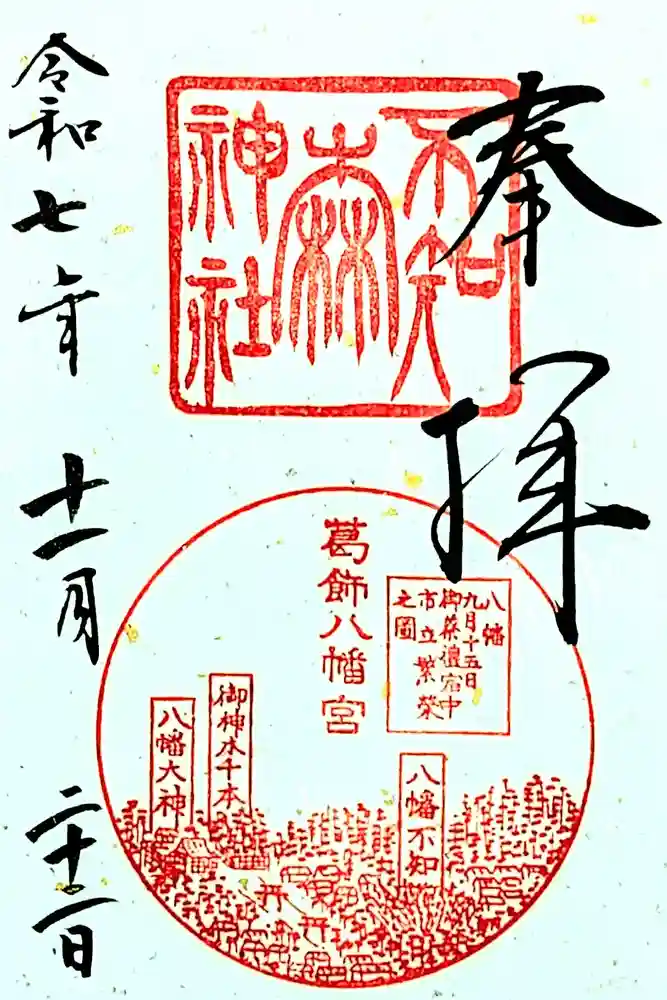 奉拝
不知
森
神社
葛飾八幡宮
八幡
九月十五日
御祭禮宿中
市立繁榮
之圖
八幡不知
御神木千本
八幡大神
令和七年十一月二十一日